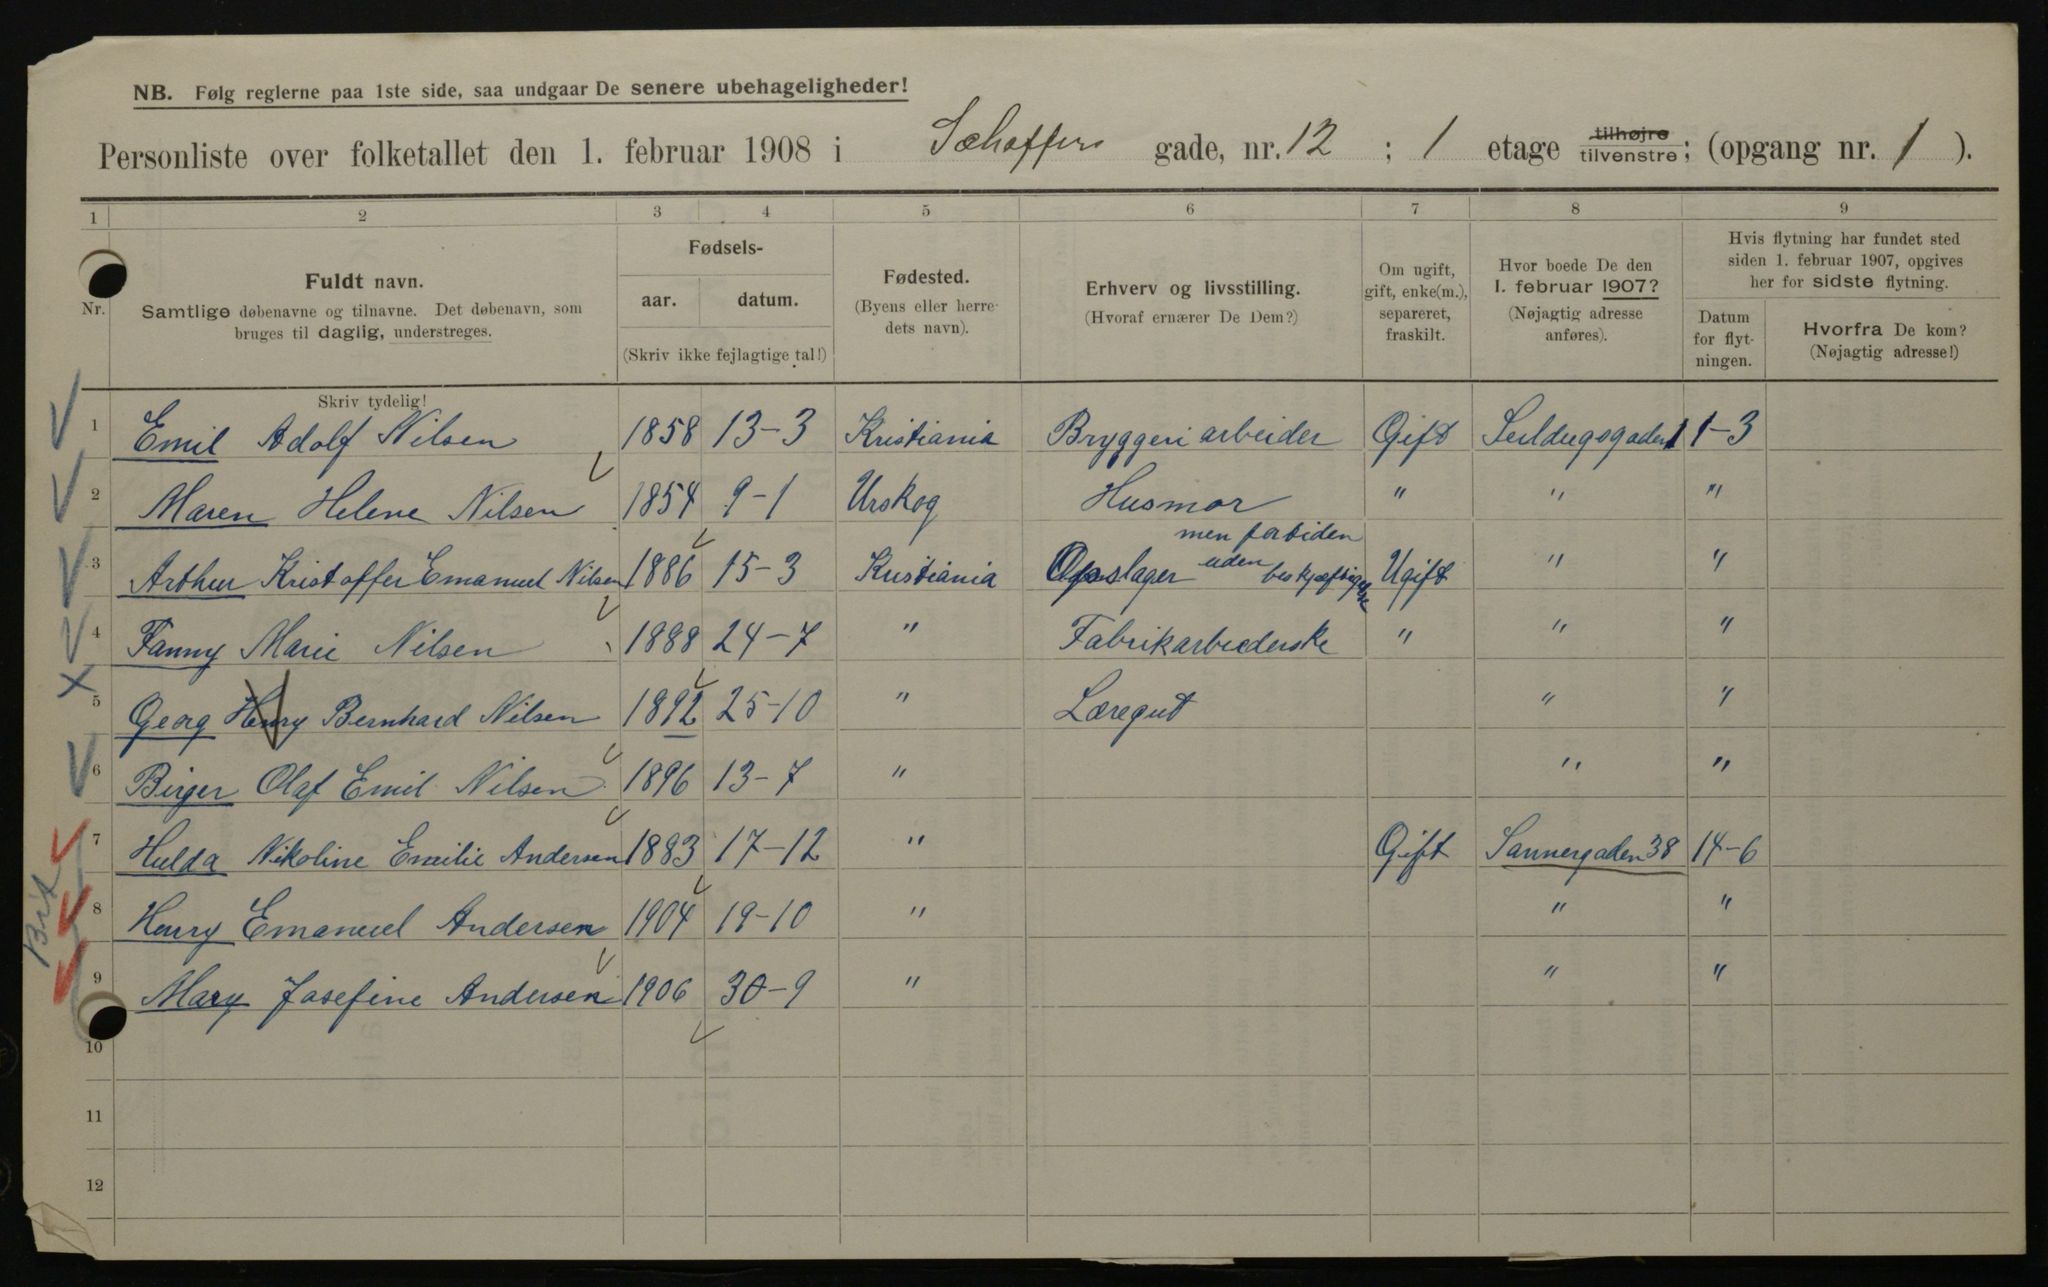 NB. Følg reglerne paa 1ste side, saa undgaar De senere ubehageligheder!
Personliste over folketallet den 1. februar 1908 i Schaffers gade, nr. 12 ; 1 etage tilhøjre tilvenstre; (opgang nr. 1 ).
1 2 3 4 5 6 7 8 9
Nr.
Fuldt navn.
Samtlige døbenavne og tilnavne. Det døbenavn, som
bruges til daglig, understreges.
Skriv tydelig!
Fødsels-
aar. datum.
(Skriv ikke fejlagtige tal!)
Fødested.
(Byens eller herre-
dets navn).
Erhverv og livsstilling.
(Hvoraf ernærer De Dem?)
Om ugift,
gift, enke(m.),
separeret,
fraskilt.
Hvor boede De den
1. februar 1907?
(Nøjagtig adresse
anføres).
Hvis flytning har fundet sted
siden 1. februar 1907, opgives
her for sidste flytning.
Datum
for flyt-
ningen.
Hvorfra De kom?
(Nøjagtig adresse!)
1 Emil Adolf Nilsen 1858 13-3 Kristiania Bryggeriarbeider Gift Seildugsgaden 1 1-3
2 Maren Helene Nilsen 1854 9-1 Urskog Husmor " " "
men fortiden
3 Arthur Kristoffer Emanuel Nilsen 1886 15-3 Kristiania Opslager uden beskjæftigelse Ugift " "
4 Fanny Marie Nilsen 1888 24-7 " Fabrikarbeiderske " " "
5 Georg Henry Bernhard Nilsen 1892 25-10 " Læregut " "
6 Birger Olaf Emil Nilsen 1896 13-7 " " "
7 Hulda Nikoline Emilie Andersen 1883 17-12 " Gift Sannergaden 38 14-6
8 Henry Emanuel Andersen 1904 19-10 " " "
9 Mary Josefine Andersen 1906 30-9 " " "
10
11
12